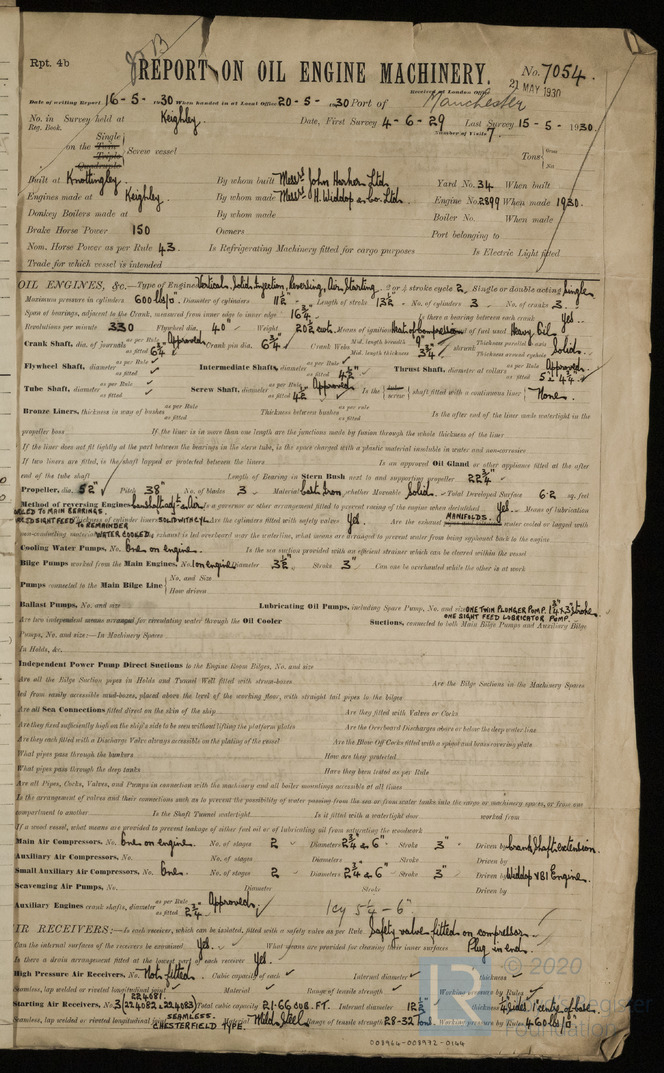 Rpt. 4b
REPORT ON OIL ENGINE MACHINERY.
No. 7054.
Received at London Office 21 MAY 1930
Date of writing Report 16-5-1930 When handed in at Local Office 20-5-1930 Port of Manchester
No. in Survey held at Keighley. Date, First Survey 4-6-29 Last Survey 15-5-1930.
Reg. Book. Number of Visits 7.
Single
on the Twin Screw vessel Tons Gross
Triple Net
Quadruple
Built at Knottingley By whom built Messrs John Harker Ltd Yard No. 34 When built
Engines made at Keighley. By whom made Messrs H. Widdop & Co. Ltd. Engine No. 2899 When made 1930.
Donkey Boilers made at By whom made Boiler No. When made
Brake Horse Power 150 Owners Port belonging to
Nom. Horse Power as per Rule 43. Is Refrigerating Machinery fitted for cargo purposes Is Electric Light fitted
Trade for which vessel is intended
OIL ENGINES, &c. Type of Engines Vertical, Solid Injection, Reversing, Air Starting. 2 or 4 stroke cycle 2. Single or double acting Single
Maximum pressure in cylinders 600 lbs/□" Diameter of cylinders 11½" Length of stroke 13½" No. of cylinders 3 No. of cranks 3.
Span of bearings, adjacent to the Crank, measured from inner edge to inner edge 16¾" Is there a bearing between each crank Yes.
Revolutions per minute 330 Flywheel dia. 40" Weight 20½ cwts. Means of ignition Heat of Compression Kind of fuel used Heavy Oil
Crank Shaft, dia. of journals as per Rule Approved as fitted 6¾" Crank pin dia. 6¾" Crank Webs Mid. length breadth 9" Mid. length thickness 3¾" shrunk Thickness parallel to axis Solid. Thickness around eyehole
Flywheel Shaft, diameter as per Rule as fitted Intermediate Shafts, diameter as per Rule as fitted 4½" Thrust Shaft, diameter at collars as per Rule Approved. as fitted
Tube Shaft, diameter as per Rule as fitted Screw Shaft, diameter as per Rule Approved as fitted 4½" Is the tube screw shaft fitted with a continuous liner None.
Bronze Liners, thickness in way of bushes as per Rule as fitted Thickness between bushes as per rule as fitted Is the after end of the liner made watertight in the
propeller boss If the liner is in more than one length are the junctions made by fusion through the whole thickness of the liner
If the liner does not fit tightly at the part between the bearings in the stern tube, is the space charged with a plastic material insoluble in water and non-corrosive
If two liners are fitted, is the shaft lapped or protected between the liners Is an approved Oil Gland or other appliance fitted at the after
end of the tube shaft Length of Bearing in Stern Bush next to and supporting propeller 22¾"
Propeller, dia. 52" Pitch 38" No. of blades 3 Material Cast Iron whether Moveable Solid. Total Developed Surface 6.2 sq. feet
Method of reversing Engines Is a governor or other arrangement fitted to prevent racing of the engine when declutched Yes. Means of lubrication
Thickness of cylinder liners SOLID WITH CYL. Are the cylinders fitted with safety valves Yes. Are the exhaust MANIFOLDS. water cooled or lagged with
non-conducting material WATER COOLED. exhaust is led overboard near the waterline, what means are arranged to prevent water from being syphoned back to the engine
Cooling Water Pumps, No. One on engine. Is the sea suction provided with an efficient strainer which can be cleared within the vessel
Bilge Pumps worked from the Main Engines, No. 1 on engine Diameter 3½" Stroke 3" Can one be overhauled while the other is at work
Pumps connected to the Main Bilge Line No. and Size
How driven
Ballast Pumps, No. and size Lubricating Oil Pumps, including Spare Pump, No. and size ONE TWIN PLUNGER PUMP. 1¾" x 3" stroke.
ONE SIGHT FEED LUBRICATOR PUMP.
Are two independent means arranged for circulating water through the Oil Cooler Suctions, connected to both Main Bilge Pumps and Auxiliary Bilge
Pumps, No. and size:—In Machinery Spaces
In Holds, &c.
Independent Power Pump Direct Suctions to the Engine Room Bilges, No. and size
Are all the Bilge Suction pipes in Holds and Tunnel Well fitted with strum-boxes Are the Bilge Suctions in the Machinery Spaces
led from easily accessible mud-boxes, placed above the level of the working floor, with straight tail pipes to the bilges
Are all Sea Connections fitted direct on the skin of the ship Are they fitted with Valves or Cocks
Are they fixed sufficiently high on the ship's side to be seen without lifting the platform plates Are the Overboard Discharges above or below the deep water line
Are they each fitted with a Discharge Valve always accessible on the plating of the vessel Are the Blow Off Cocks fitted with a spigot and brass covering plate
What pipes pass through the bunkers How are they protected
What pipes pass through the deep tanks Have they been tested as per Rule
Are all Pipes, Cocks, Valves, and Pumps in connection with the machinery and all boiler mountings accessible at all times
Is the arrangement of valves and their connections such as to prevent the possibility of water passing from the sea or from water tanks into the cargo or machinery spaces, or from one
compartment to another Is the Shaft Tunnel watertight Is it fitted with a watertight door worked from
If a wood vessel, what means are provided to prevent leakage of either fuel oil or of lubricating oil from saturating the woodwork
Main Air Compressors, No. One on engine. No. of stages 2 Diameters 2¾" & 6" Stroke 3" Driven by Crank Shaft extention.
Auxiliary Air Compressors, No. No. of stages Diameters Stroke Driven by
Small Auxiliary Air Compressors, No. One. No. of stages 2 Diameters 2¾" & 6" Stroke 3" Driven by Widdop VB1 Engine.
Scavenging Air Pumps, No. Diameter Stroke Driven by
Auxiliary Engines crank shafts, diameter as per Rule Approved. as fitted 2¾" 1cy 5¼ - 6"
AIR RECEIVERS:—Is each receiver, which can be isolated, fitted with a safety valve as per Rule Safety valve fitted on compressor.
Can the internal surfaces of the receivers be examined Yes. What means are provided for cleaning their inner surfaces Plug in end.
Is there a drain arrangement fitted at the lowest part of each receiver Yes.
High Pressure Air Receivers, No. Not fitted. Cubic capacity of each Internal diameter thickness
Seamless, lap welded or riveted longitudinal joint Material Range of tensile strength Working pressure by Rules
Starting Air Receivers, No. 3 (224081. 224082 & 224083) Total cubic capacity 21.66 CUB. FT. Internal diameter 12½" thickness
Seamless, lap welded or riveted longitudinal joint SEAMLESS. CHESTERFIELD TYPE. Material Mild Steel Range of tensile strength 28-32 Tons. Working pressure by Rules 460 lbs/□"
© 2020
Lloyd's Register
Foundation
008964-008972-0144